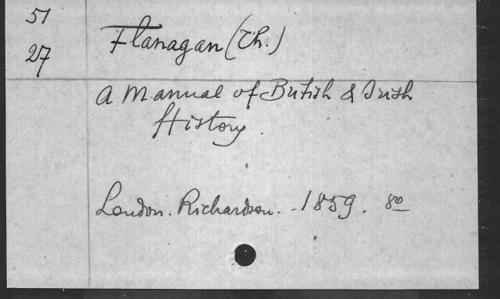 51
27
Flanagan (Th.)
A Manual of British & Irish
History.
London. Richardson. - 1859. 8o